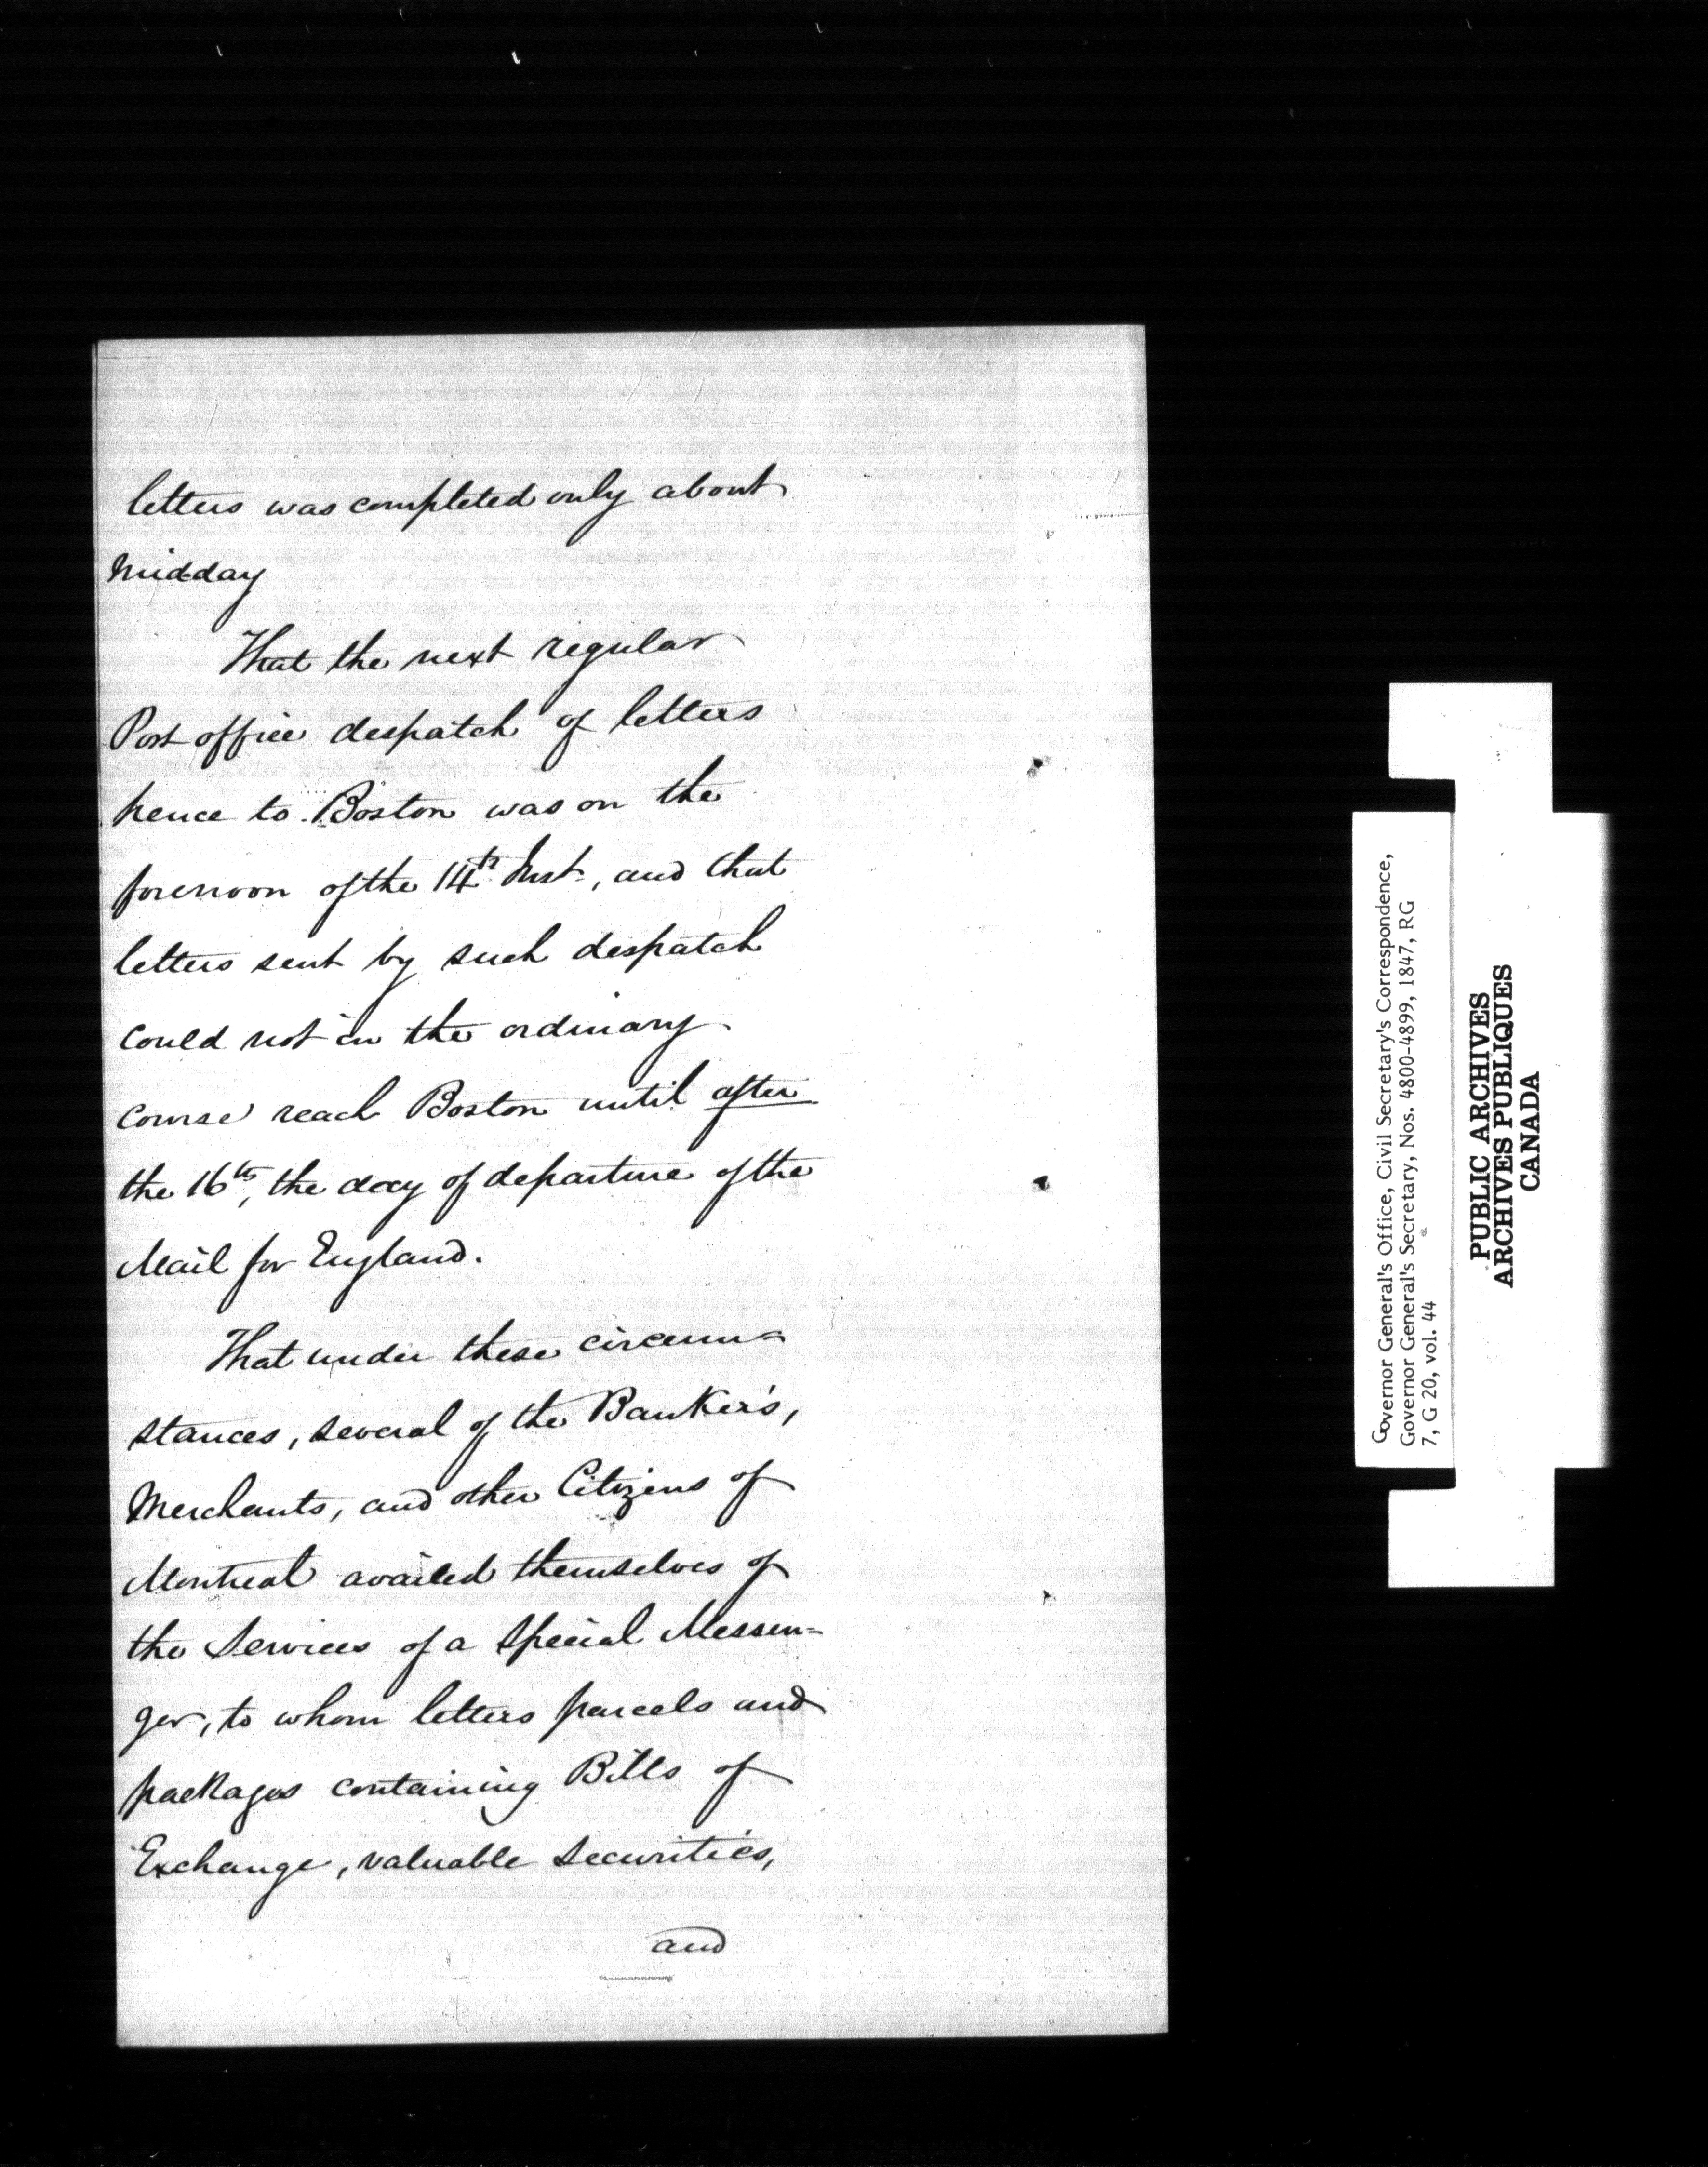 letters was completed only about
Midday
That the next regular
Post office despatch of letters
hence to Boston was on the
forenoon of the 14th Inst., and that
letters sent by such despatch
could not in the ordinary
course reach Boston until after
the 16th, the day of departure of the
Mail for England.
That under these circum=
stances, several of the Banker's,
Merchants, and other Citizens of
Montreal availed themselves of
the Services of a Special Messen=
ger, to whom letters parcels and
packages containing Bills of
Exchange, valuable Securities,
and
Governor General's Office, Civil Secretary's Correspondence,
Governor General's Secretary, Nos. 4800-4899, 1847, RG
7, G 20, vol. 44
PUBLIC ARCHIVES
ARCHIVES PUBLIQUES
CANADA